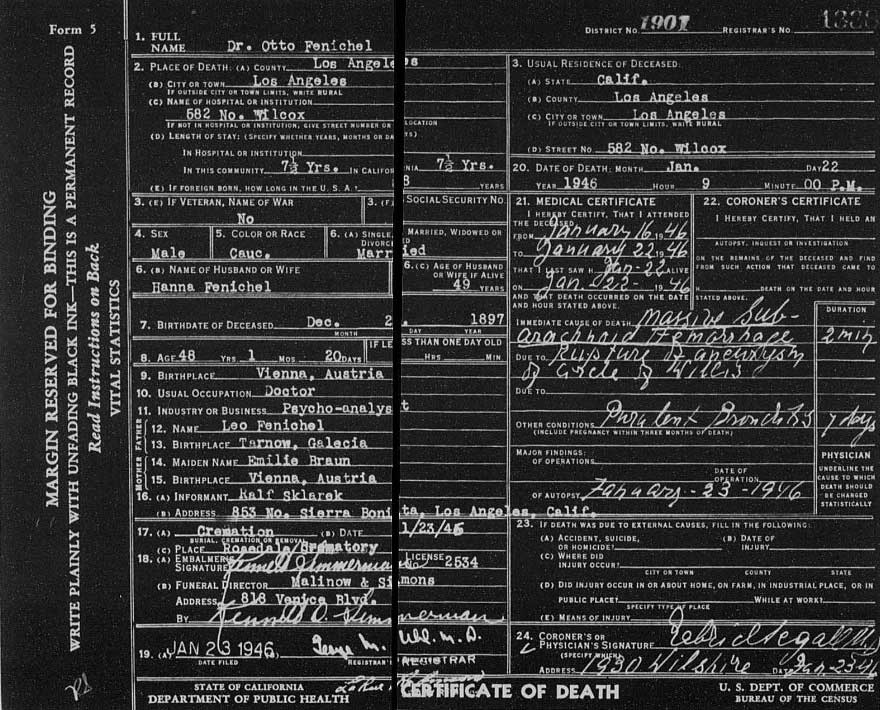 Form 5
MARGIN RESERVED FOR BINDING
WRITE PLAINLY WITH UNFADING BLACK INK—THIS IS A PERMANENT RECORD
Read Instructions on Back
VITAL STATISTICS
DISTRICT No 1901 REGISTRAR'S No.
1. FULL NAME Dr. Otto Fenichel
2. PLACE OF DEATH: (A) COUNTY Los Angeles
(B) CITY OR TOWN Los Angeles
IF OUTSIDE CITY OR TOWN LIMITS, WRITE RURAL
(C) NAME OF HOSPITAL OR INSTITUTION
582 No. Wilcox
IF NOT IN HOSPITAL OR INSTITUTION, GIVE STREET NUMBER OR LOCATION
(D) LENGTH OF STAY: (SPECIFY WHETHER YEARS, MONTHS OR DAYS)
IN HOSPITAL OR INSTITUTION
IN THIS COMMUNITY 7½ Yrs. IN CALIFORNIA 7½ Yrs.
(E) IF FOREIGN BORN, HOW LONG IN THE U. S. A.? 8 YEARS
3. USUAL RESIDENCE OF DECEASED:
(A) STATE Calif.
(B) COUNTY Los Angeles
(C) CITY OR TOWN Los Angeles
IF OUTSIDE CITY OR TOWN LIMITS, WRITE RURAL
(D) STREET No 582 No. Wilcox
3. (E) IF VETERAN, NAME OF WAR
No
3. (F) SOCIAL SECURITY No.
4. SEX
Male
5. COLOR OR RACE
Cauc.
6. (A) SINGLE, MARRIED, WIDOWED OR DIVORCED
Married
6. (B) NAME OF HUSBAND OR WIFE
Hanna Fenichel
6. (C) AGE OF HUSBAND OR WIFE IF ALIVE
49 YEARS
7. BIRTHDATE OF DECEASED Dec. 2 1897
MONTH DAY YEAR
8. AGE 48 YRS 1 MOS 20 DAYS IF LESS THAN ONE DAY OLD
HRS MIN
9. BIRTHPLACE Vienna, Austria
10. USUAL OCCUPATION Doctor
11. INDUSTRY OR BUSINESS Psycho-analyst
FATHER
12. NAME Leo Fenichel
13. BIRTHPLACE Tarnow, Galecia
MOTHER
14. MAIDEN NAME Emilie Braun
15. BIRTHPLACE Vienna, Austria
16. (A) INFORMANT Ralf Sklarek
(B) ADDRESS 853 No. Sierra Bonita, Los Angeles, Calif.
17. (A) Cremation (B) DATE 1/23/46
BURIAL, CREMATION OR REMOVAL
(C) PLACE Rosedale Crematory
18. (A) EMBALMER'S SIGNATURE Kenneth Zimmerman LICENSE No. 2534
(B) FUNERAL DIRECTOR Malinow & Simons
ADDRESS 818 Venice Blvd.
BY Kenneth O. Zimmerman
19. (A) JAN 23 1946
DATE FILED REGISTRAR'S
REGISTRAR
20. DATE OF DEATH: MONTH Jan. DAY 22
YEAR 1946 HOUR 9 MINUTE 00 P.M.
21. MEDICAL CERTIFICATE
I HEREBY CERTIFY, THAT I ATTENDED
THE DECEASED
FROM January 16 1946
TO January 22 1946
THAT I LAST SAW H Jan-22 ALIVE
ON Jan-22- 1946
AND THAT DEATH OCCURRED ON THE DATE
AND HOUR STATED ABOVE.
22. CORONER'S CERTIFICATE
I HEREBY CERTIFY, THAT I HELD AN
AUTOPSY, INQUEST OR INVESTIGATION
ON THE REMAINS OF THE DECEASED AND FIND
FROM SUCH ACTION THAT DECEASED CAME TO
DEATH ON THE DATE AND HOUR
STATED ABOVE.
DURATION
IMMEDIATE CAUSE OF DEATH Massive Sub-
arachnoid Hemorrhage 2 min
DUE TO Rupture of aneurysm
of Circle of Willis
DUE TO
OTHER CONDITIONS Purulent Bronchitis 7 days
(INCLUDE PREGNANCY WITHIN THREE MONTHS OF DEATH)
MAJOR FINDINGS:
OF OPERATIONS
DATE OF OPERATION
OF AUTOPSY January-23-1946
PHYSICIAN
UNDERLINE THE
CAUSE TO WHICH
DEATH SHOULD
BE CHARGED
STATISTICALLY
23. IF DEATH WAS DUE TO EXTERNAL CAUSES, FILL IN THE FOLLOWING:
(A) ACCIDENT, SUICIDE, OR HOMICIDE? (B) DATE OF INJURY
(C) WHERE DID INJURY OCCUR?
CITY OR TOWN COUNTY STATE
(D) DID INJURY OCCUR IN OR ABOUT HOME, ON FARM, IN INDUSTRIAL PLACE, OR IN
PUBLIC PLACE? WHILE AT WORK?
SPECIFY TYPE OF PLACE
(E) MEANS OF INJURY
24. CORONER'S OR PHYSICIAN'S SIGNATURE Segall MD
(SPECIFY WHICH)
ADDRESS 1930 Wilshire DATE Jan-23-46
STATE OF CALIFORNIA
DEPARTMENT OF PUBLIC HEALTH
CERTIFICATE OF DEATH
U. S. DEPT. OF COMMERCE
BUREAU OF THE CENSUS